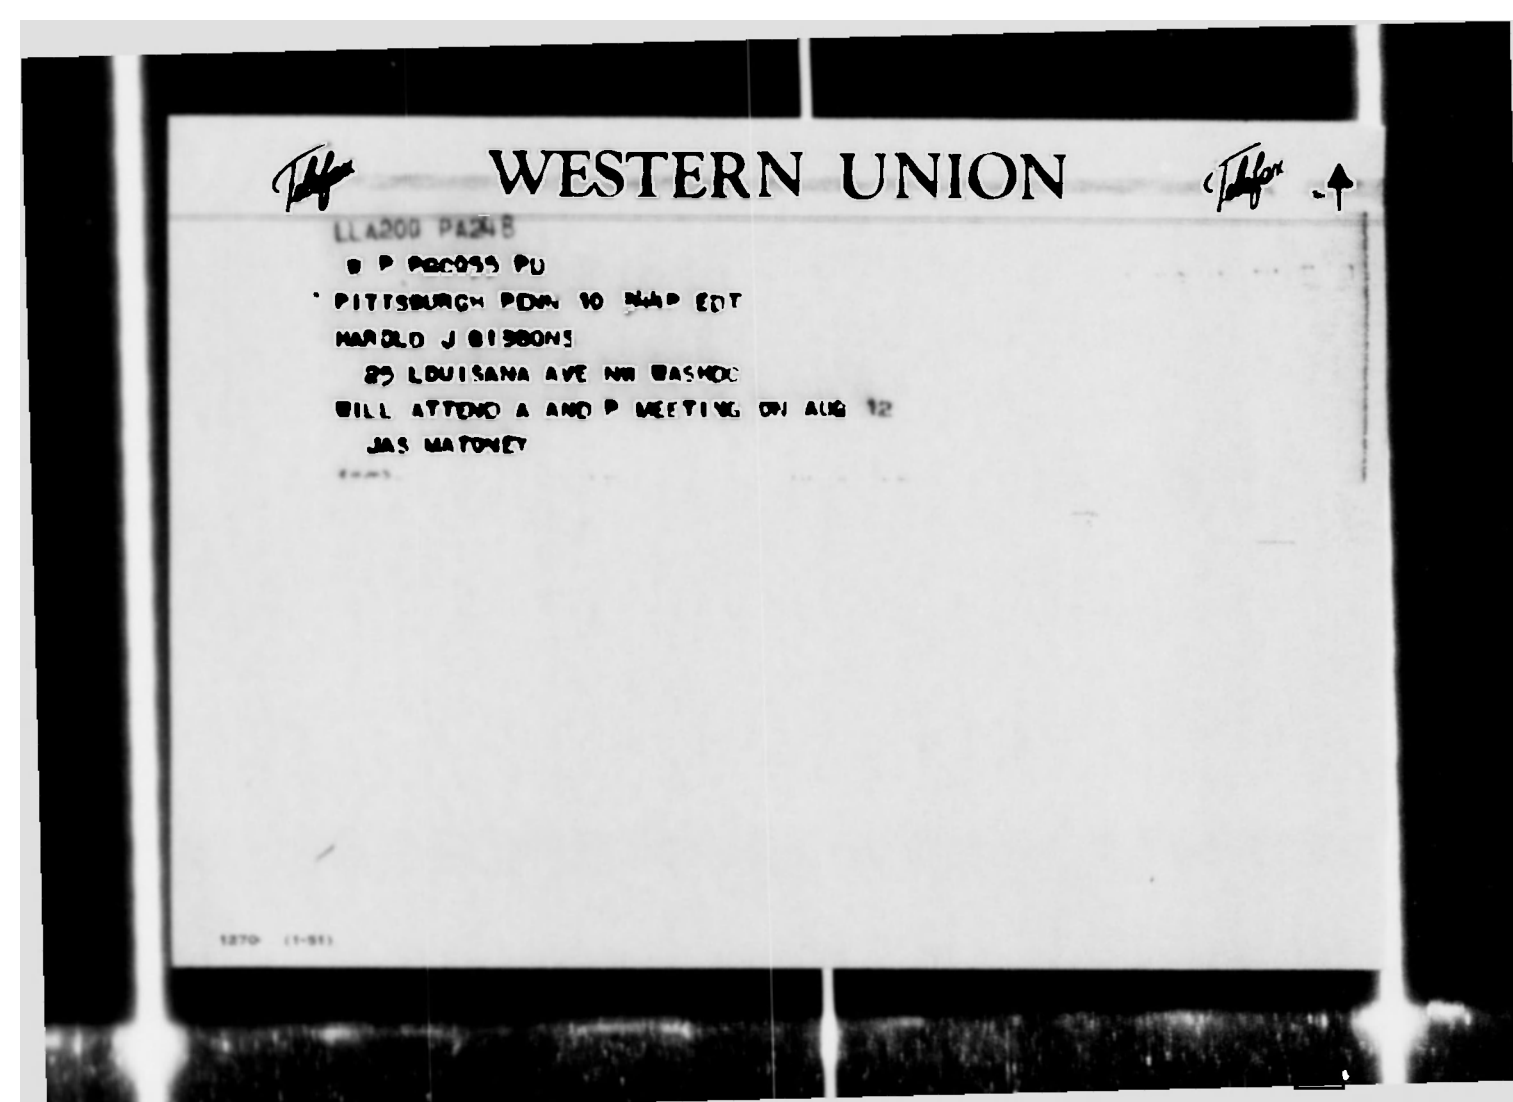 Telefax WESTERN UNION Telefax
LLA200 PA248
P PRC055 PD
PITTSBURGH PENN 10 EDT
HAROLD J GIBBONS
25 LOUISANA AVE NW WASHDC
WILL ATTEND A AND P MEETING ON AUG 12
JAS MATONEY
1270 (1-51)